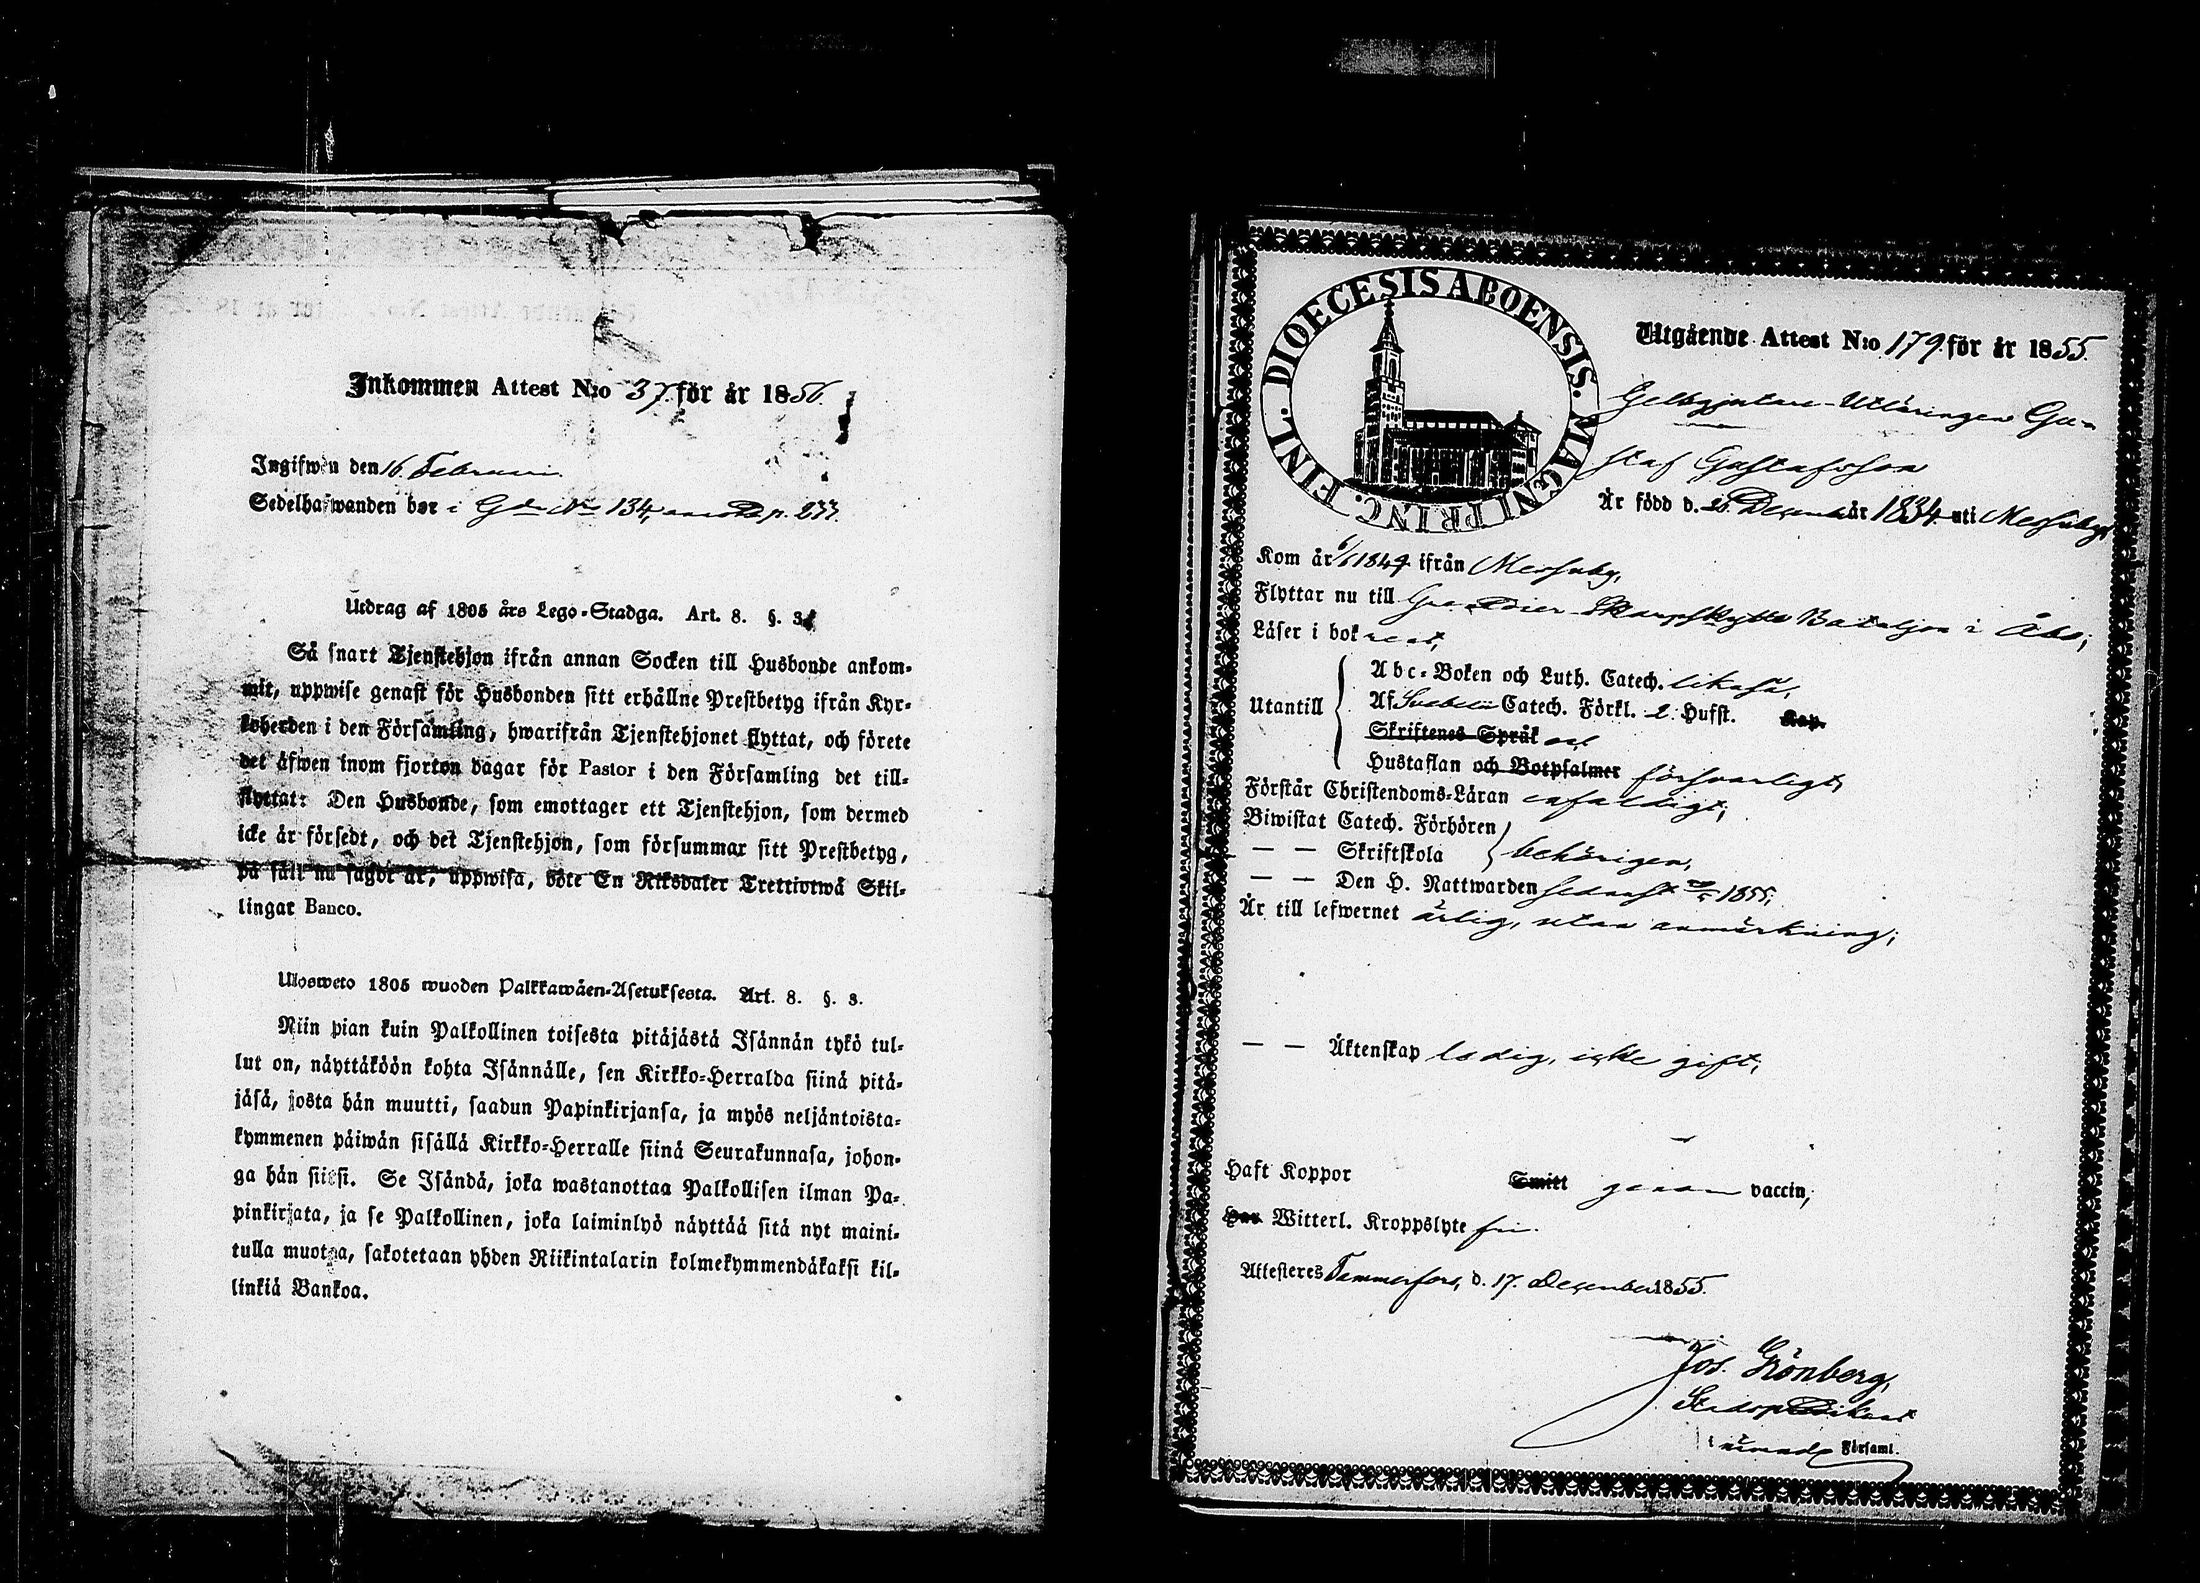 Inkommen Attest N:o 37 för år 1856.
Ingifwen den 16. Februari
Sedelhafwanden bor i Gdn No 134, p. 277.
Utdrag af 1805 års Lego-Stadga. Art. 8. §. 3.
Så snart Tjenstehjon ifrån annan Socken till Husbonde ankom-
mit, uppwise genast för Husbonden sitt erhållne Prestbetyg ifrån Kyr-
koherden i den Församling, hwarifrån Tjenstehjonet flyttat, och förete
det äfwen inom fjorton dagar för Pastor i den Församling det till-
flyttat: Den Husbonde, som emottager ett Tjenstehjon, som dermed
icke är försedt, och det Tjenstehjon, som försummar sitt Prestbetyg,
på sätt nu sagdt är, uppwisa, böte En Riksdaler Trettiotwå Skil-
lingar Banco.
Ulosweto 1805 wuoden Palkkawäen-Asetuksesta. Art. 8. §. 3.
Niin pian kuin Palkollinen toisesta pitäjästä Isännän tykö tul-
lut on, näyttäköön kohta Isännälle, sen Kirkko-Herralda siinä pitä-
jäsä, josta hän muutti, saadun Papinkirjansa, ja myös neljäntoista-
kymmenen päiwän sisällä Kirkko-Herralle siinä Seurakunnasa, johon-
ga hän siirsi. Se Isändä, joka wastanottaa Palkollisen ilman Pa-
pinkirjata, ja se Palkollinen, joka laiminlyö näyttää sitä nyt maini-
tulla muotoa, sakotetaan yhden Riikintalarin kolmekymmendäkaksi kil-
linkiä Bankoa.
DIOECESIS ABOENSIS. MAGNI PRINC. FINL.
Utgående Attest N:o 179 för år 1855.
Gelbgjutare-Utläringen Gu-
staf Gustafsson
Är född d. 25 December år 1834 uti Messuby,
Kom år 6/6 1849 ifrån Messuby,
Flyttar nu till Grenadier Skarpskytte Bataljon i Åbo;
Läser i bok rent,
Utantill
Abc-Boken och Luth. Catech. likaså,
Af Svebelii Catech. Förkl. 2. Hufst. Kap.
Skriftenes Språk och
Hustaflan och Botpsalmer försvarligt,
Förstår Christendoms-Läran enfaldigt;
Biwistat Catech. Förhören
— — Skriftskola behörigen,
— — Den H. Nattwarden senast 1855;
Är till lefwernet ärlig, utan anmärkning;
— — Äktenskap ledig, icke gift;
Haft Koppor Smitt genom vaccin;
Har Witterl. Kroppslyte fri.
Attesteres Tammerfors, d. 17. December 1855.
Jos. Grönberg,
Stadspredikant
i nämnde Församl.